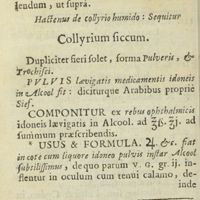 lendum, ut supra.
Hactenus de collyrio humido: Sequitur
Collyrium siccum.
Dupliciter fieri solet, forma Pulveris, &
Trochisci.
PULVIS lævigatis medicamentis idoneis
in Alcool fit: diciturque Arabibus proprie
Sief.
COMPONITUR ex rebus ophthalmicis
idoneis lævigatis in Alcool. ad ʒß. ʒj. ad
summum præscribendis.
* USUS & FORMULA. ♃. &c. fiat
in cote cum liquore idoneo pulvis instar Alcool
subtilissimus, de quo parum v. g. gr. ij. in-
flentur in oculum cum tenui calamo, de-
inde